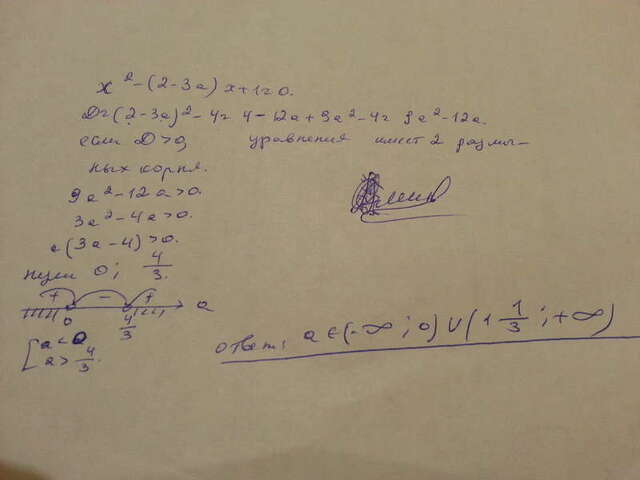 x² - (2 - 3a) x + 1 = 0.
D = (2 - 3a)² - 4 = 4 - 12a + 9a² - 4 = 9a² - 12a.
если D > 0, уравнения имеет 2 различ-
ных корня.
9a² - 12a > 0.
3a² - 4a > 0.
a(3a - 4) > 0.
нули 0; 4/3.
+ - + a
0 4/3
[a < 0
a > 4/3.
ответ: a ∈ (-∞; 0) ∪ (1 1/3; +∞)